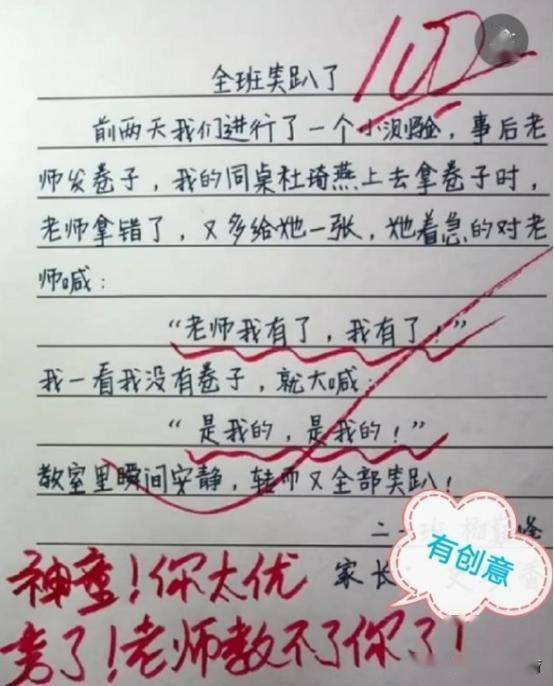 100
全班笑趴了
前两天我们进行了一个小测验，事后老
师发卷子，我的同桌杜琦燕上去拿卷子时，
老师拿错了，又多给她一张，她着急的对老
师喊：
“老师我有了，我有了！”
我一看我没有卷子，就大喊：
“是我的，是我的！”
教室里瞬间安静，转而又全部笑趴！
二 班 杨
家长：
有创意
神童！你太优
秀了！老师教不了你了！